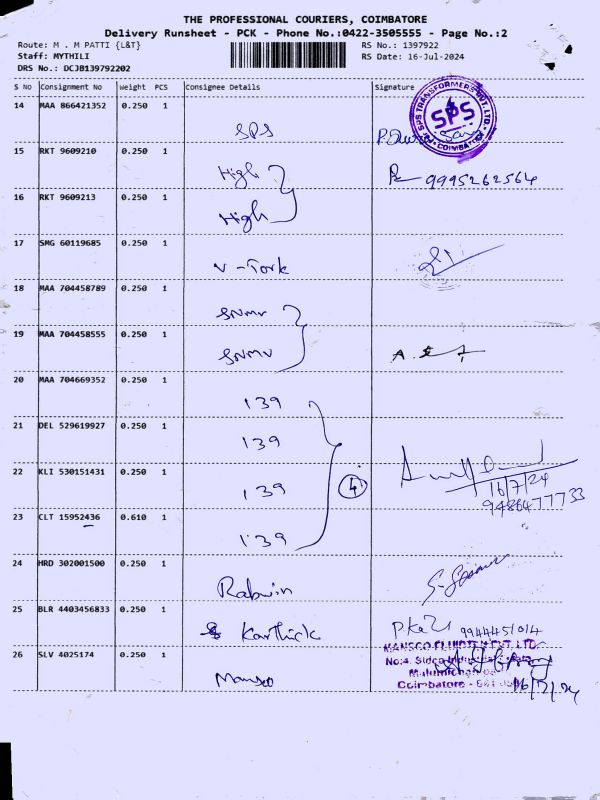 THE PROFESSIONAL COURIERS, COIMBATORE
Delivery Runsheet - PCK - Phone No.:0422-3505555 - Page No.:2
Route: M . M PATTI {L&T}
RS No.: 1397922
Staff: MYTHILI
RS Date: 16-Jul-2024
DRS No.: DCJB139792202
S No Consignment No Weight PCS Consignee Details Signature
14 MAA 866421352 0.250 1
SPS
SPS TRANSFORMERS PVT. LTD. SPS COIMBATORE
15 RKT 9609210 0.250 1
High
9995262564
16 RKT 9609213 0.250 1
High
17 SMG 60119685 0.250 1
V-Tork
18 MAA 704458789 0.250 1
SNMV
19 MAA 704458555 0.250 1
SNMV
20 MAA 704669352 0.250 1
139
21 DEL 529619927 0.250 1
139
22 KLI 530151431 0.250 1
139
4
16/7/24
9486477733
23 CLT 15952436 0.610 1
139
24 HRD 302001500 0.250 1
Rabwin
25 BLR 4403456833 0.250 1
Karthick
9944451014
26 SLV 4025174 0.250 1
Mansco
No:4 Sidco
Coimbatore
16/7/24